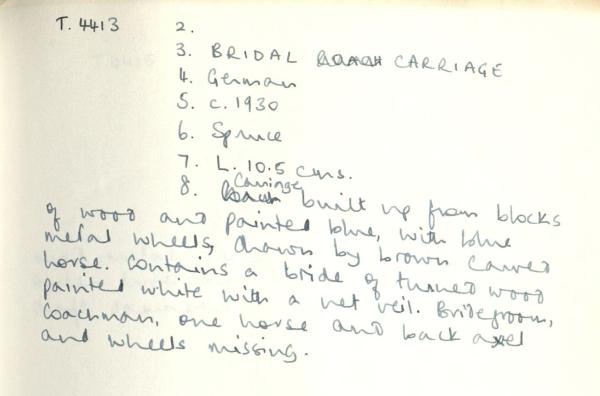 T. 4413 2.
3. BRIDAL COACH CARRIAGE
4. German
5. c. 1930
6. Spruce
7. L. 10.5 cms.
Carriage
8. Coach built up from blocks
of wood and painted blue, with blue
metal wheels, drawn by brown carved
horse. Contains a bride of turned wood
painted white with a net veil. Bridegroom,
coachman, one horse and back axel
and wheels missing.